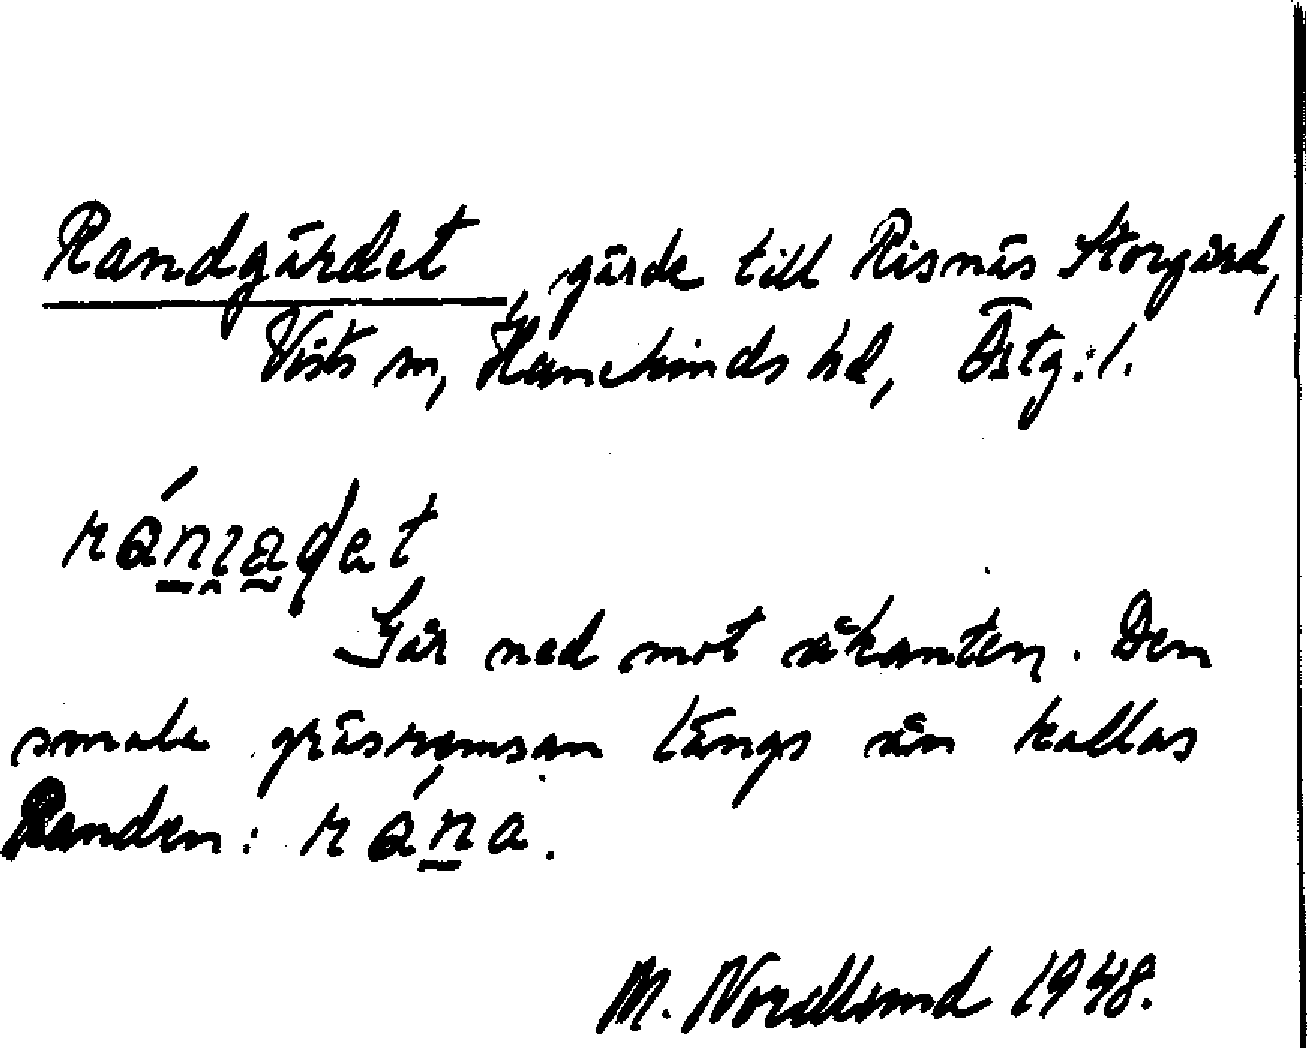 Randgärdet, gärde till Risnäs Storgård,
Vists sn, Hanekinds hd, Östg:l.
Går ned mot åkanten. Den
smala gräsremsan längs ån kallas
Randen: rána.
M. Nordlund 1948.